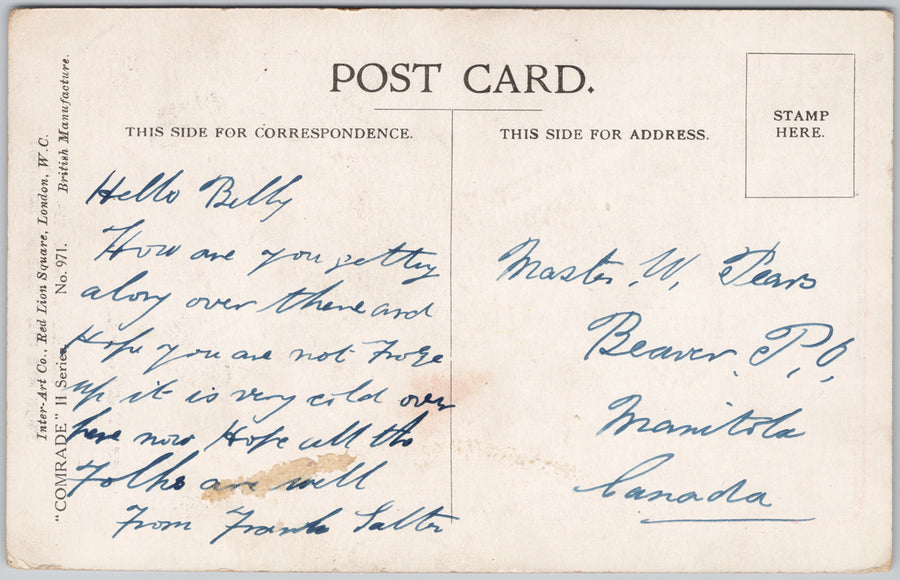 POST CARD.
THIS SIDE FOR CORRESPONDENCE.
THIS SIDE FOR ADDRESS.
STAMP
HERE.
Inter-Art Co., Red Lion Square, London, W.C.
British Manufacture.
"COMRADE" II Series. No. 971.
Hello Billy
How are you getting
along over there and
Hope you are not Froze
up it is very cold over
here now Hope all the
Folks are well
From Frank Salter
Master W. Pears
Beaver. P.O.
Manitola
Canada